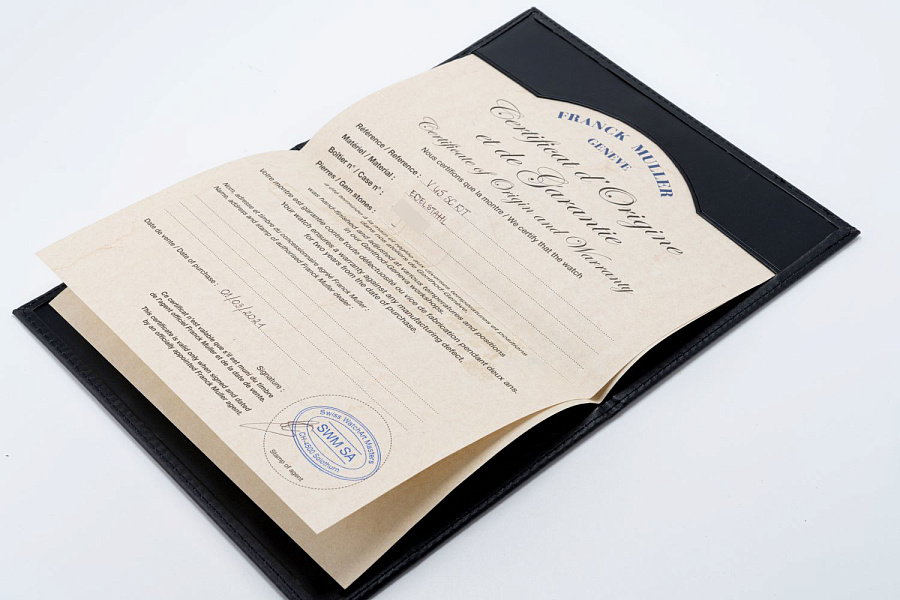 FRANCK MULLER
GENEVE
Certificat d'Origine
et de Garantie
Certificate of Origin and Warranty
Nous certifions que la montre / We certify that the watch
Référence / Reference :
Matériel / Material : EDELSTAHL
Boîtier n° / Case n° :
Pierres / Gem stones :
in our Genthod-Geneva workshops.
Votre montre est garantie contre toute défectuosité ou vice de fabrication pendant deux ans.
Your watch ensures a warranty against any manufacturing defect,
for two years from the date of purchase.
Nom, adresse et timbre du concessionnaire agréé Franck Muller :
Name, address and stamp of authorised Franck Muller dealer :
Date de vente / Date of purchase : 01/03/2021
Signature :
Ce certificat n'est valable que s'il est muni du timbre
de l'agent officiel Franck Muller et de la date de vente.
This certificate is valid only when signed and dated
by an officially appointed Franck Muller agent.
Swiss WatchArt Masters
SWM SA
CH-4500 Solothurn
Stamp of agent